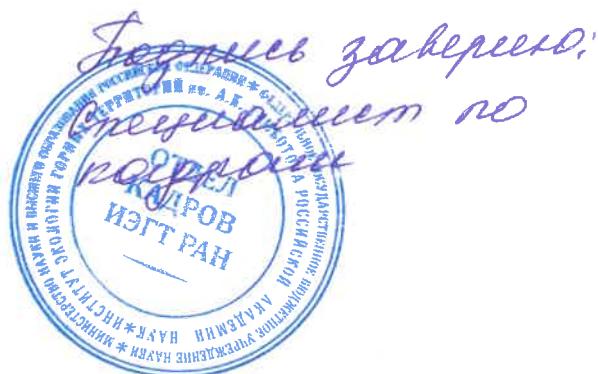 Подпись заверяю:
Специалист по
кадрам
МИНИСТЕРСТВО НАУКИ И ВЫСШЕГО ОБРАЗОВАНИЯ РОССИЙСКОЙ ФЕДЕРАЦИИ * ФЕДЕРАЛЬНОЕ ГОСУДАРСТВЕННОЕ БЮДЖЕТНОЕ УЧРЕЖДЕНИЕ НАУКИ *
ИНСТИТУТ ЭКОЛОГИИ ГОРНЫХ ТЕРРИТОРИЙ им. А.К. ТЕМБОТОВА РОССИЙСКОЙ АКАДЕМИИ НАУК *
ОТДЕЛ
КАДРОВ
ИЭГТ РАН